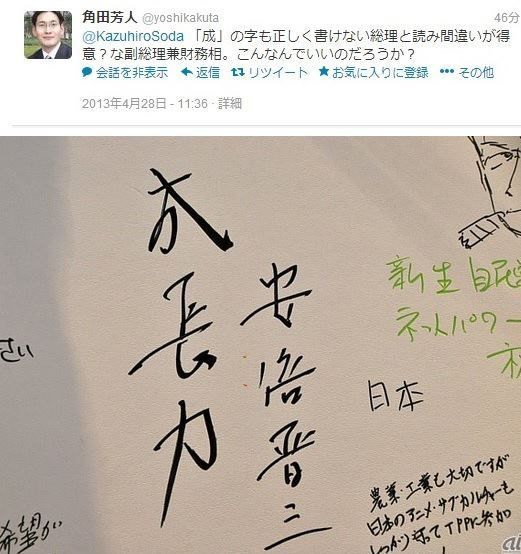 角田芳人 @yoshikakuta 46分
@KazuhiroSoda 「成」の字も正しく書けない総理と読み間違いが得
意？な副総理兼財務相。こんなんでいいのだろうか？
会話を非表示 返信 リツイート お気に入りに登録 その他
2013年4月28日 - 11:36 · 詳細
成長力
安倍晋三
新生自民
ネットパワー
日本
農業・工業も大切ですが
日本のアニメ・サブカルチャーも
しっかり守ってTPPに参加
さい
希望が